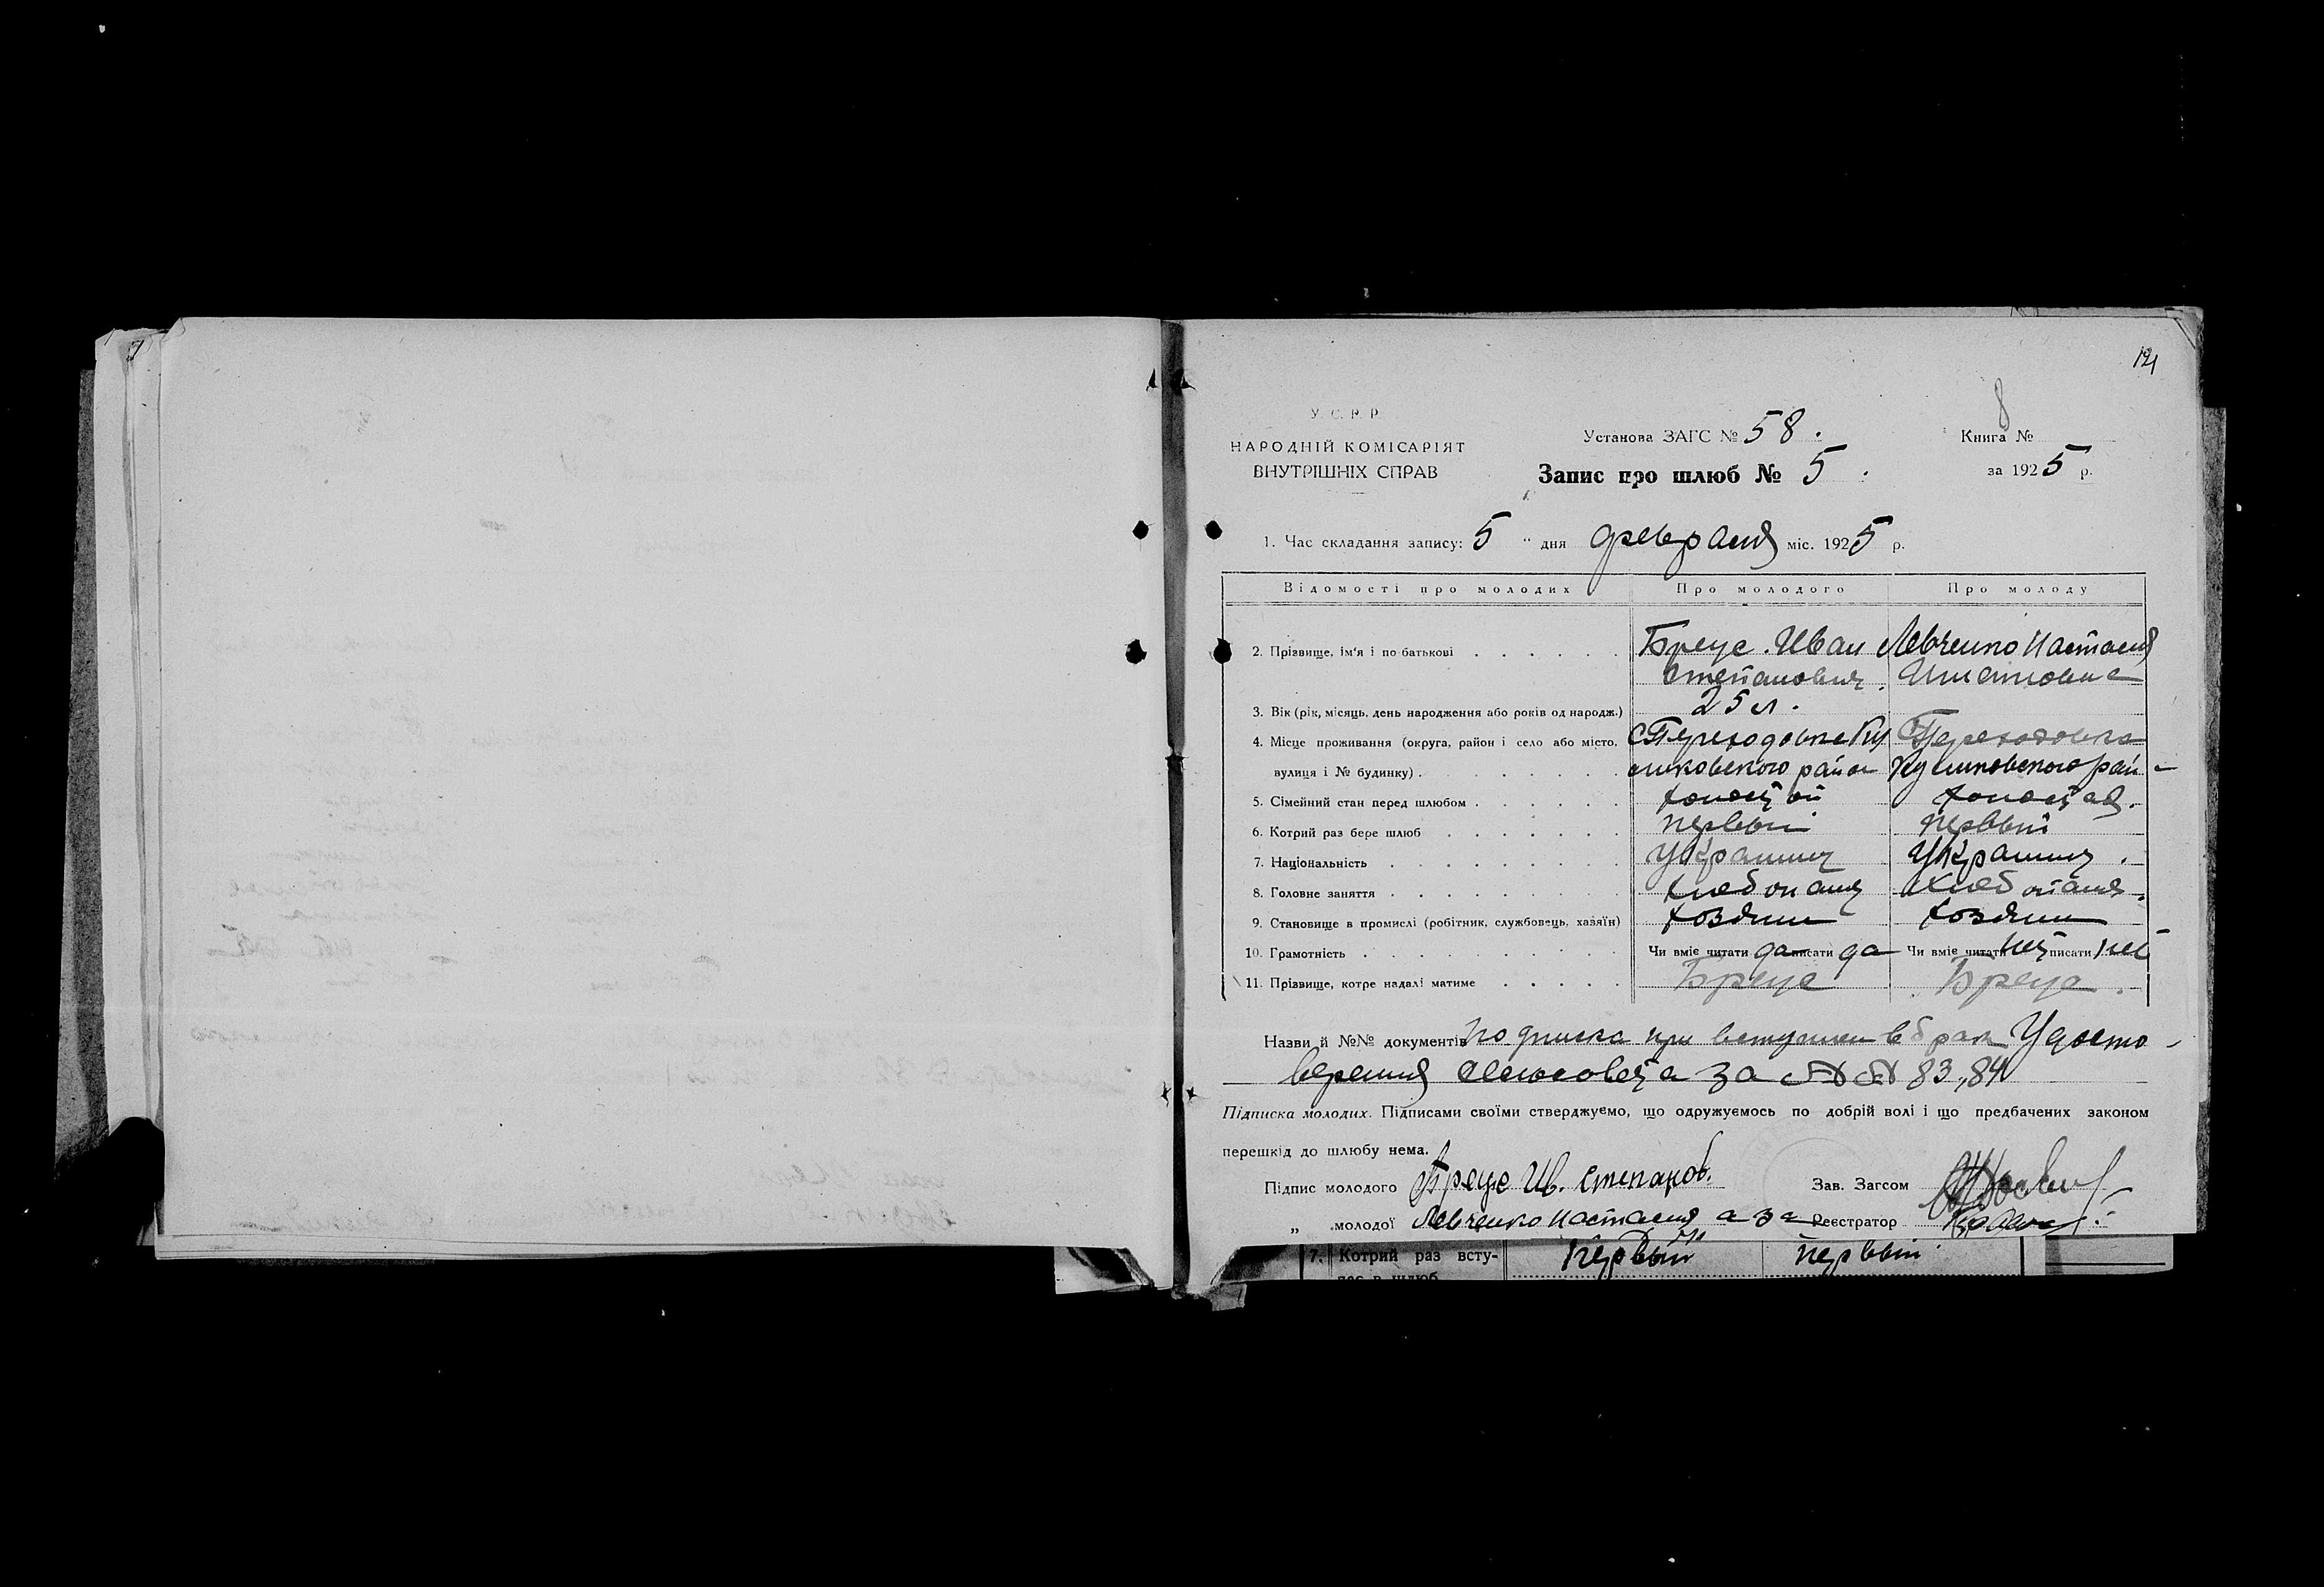 У. С. Р. Р.
НАРОДНІЙ КОМІСАРІЯТ
ВНУТРІШНІХ СПРАВ
Установа ЗАГС № 58.
Запис про шлюб № 5.
8
Книга №
за 1925 р.
1. Час складання запису: 5 " дня февраля міс. 1925 р.
Відомості про молодих Про молодого Про молоду
2. Прізвище, ім'я і по-батькові Бреус. Иван Левченко Настасия
Степанович. Игнатовна
3. Вік (рік, місяць, день народження або років од народж.) 25 л.
4. Місце проживання (округа, район і село або місто, С Переходовка С Переходовка
вулиця і № будинку) району рай
5. Сімейний стан перед шлюбом холостой холостая.
6. Котрий раз бере шлюб первый первый
7. Національність Украинец Украинец.
8. Головне заняття хлебопашец хлебопашец.
9. Становище в промислі (робітник, службовець, хазяїн) хозяин хозяин
10. Грамотність Чи вміє читати да писати да Чи вміє читати нет писати нет
11. Прізвище, котре надалі матиме Бреус Бреус.
Назви й №№ документів Подписка при вступлении в брак Удосто-
верения сельсовета за №№ 83, 84
Підписка молодих. Підписами своїми стверджуємо, що одружуємось по добрій волі і що предбачених законом
перешкід до шлюбу нема.
Підпис молодого Бреус Ив. Степанов. Зав. Загсом
„ молодої Левченко Настасия а за Реєстратор
7. Котрий раз всту- Первый первый